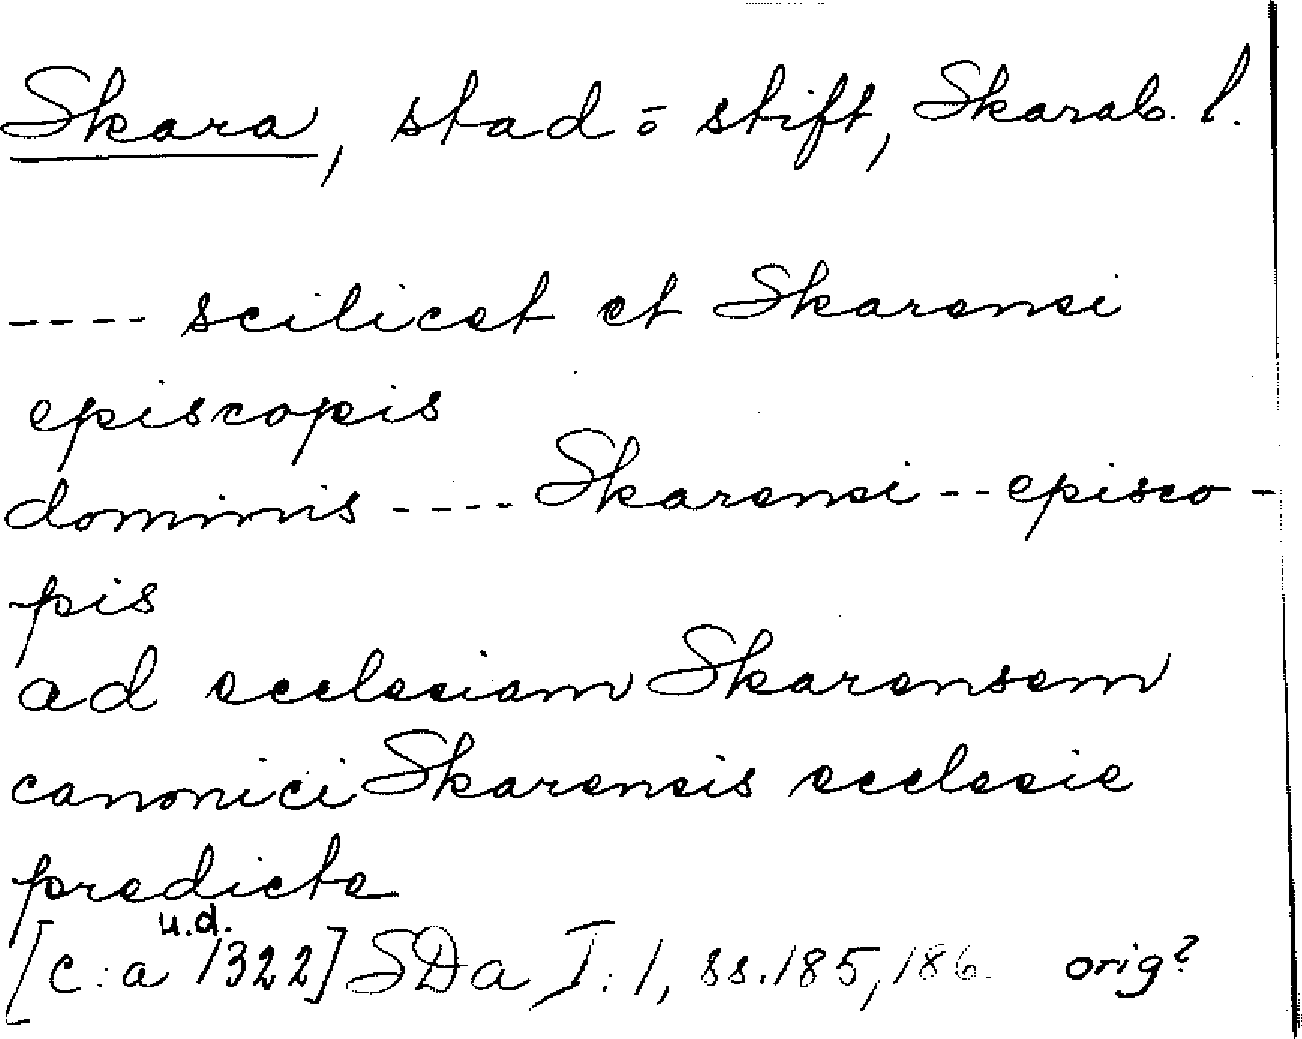 Skara, stad o stift, Skarab. l.
---- scilicet et Skarensi
episcopis
dominis ---- Skarensi -- episco-
pis
ad ecclesiam Skarensem
canonici Skarensis ecclesie
predicte
u.d.
[c:a 1322] SDa I:1, ss.185,186. orig?